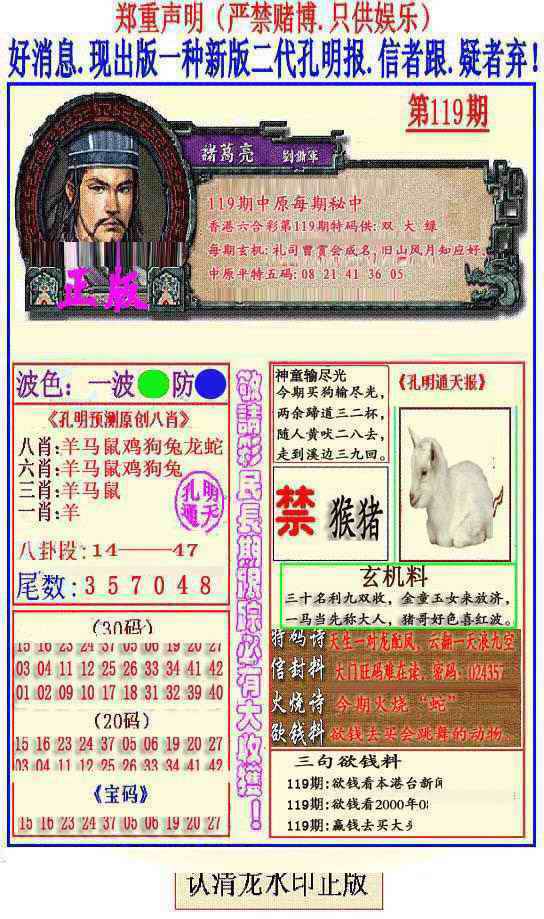 郑重声明（严禁赌博.只供娱乐）
好消息.现出版一种新版二代孔明报.信者跟.疑者弃!
第119期
諸葛亮
119期中原每期秘中
香港六合彩第119期特码供: 双 大 绿
每期玄机: 礼司曹賞会成名, 旧山风月知应好.
中原平特五码: 08 21 41 36 05
正版
波色: 一波 防
《孔明预测原创八肖》
八肖:羊马鼠鸡狗兔龙蛇
六肖:羊马鼠鸡狗兔
三肖:羊马鼠
一肖:羊
孔明
通天
八卦段:14——47
尾数:357048
(30码)
15 16 23 24 37 05 06 19 20 27
03 04 11 12 25 26 33 34 41 42
01 02 09 10 17 18 31 32 39 40
(20码)
15 16 23 24 37 05 06 19 20 27
03 04 11 12 25 26 33 34 41 42
《宝码》
15 16 23 24 37 05 06 19 20 27
敬請彩民長期跟踪必有大收獲!
神童输尽光
今期买狗输尽光,
两余蹄道三二杯,
随人黄吠二八去,
走到溪边三九回。
《孔明通天报》
禁
猴猪
玄机料
三十名利九双收, 金童玉女来放济,
一马当先称大人, 猪哥好色喜红波。
特码诗 天生一对龙配凤, 云翻一天浪九空
信封料 大门旺码难在读, 密码: 024357
火烧诗 今期火烧“蛇”
欲钱料 欲钱去买会跳舞的动物.
三句欲钱料
119期:欲钱看本港台新闻
119期:欲钱看2000年
119期:赢钱去买大
认清龙水印正版